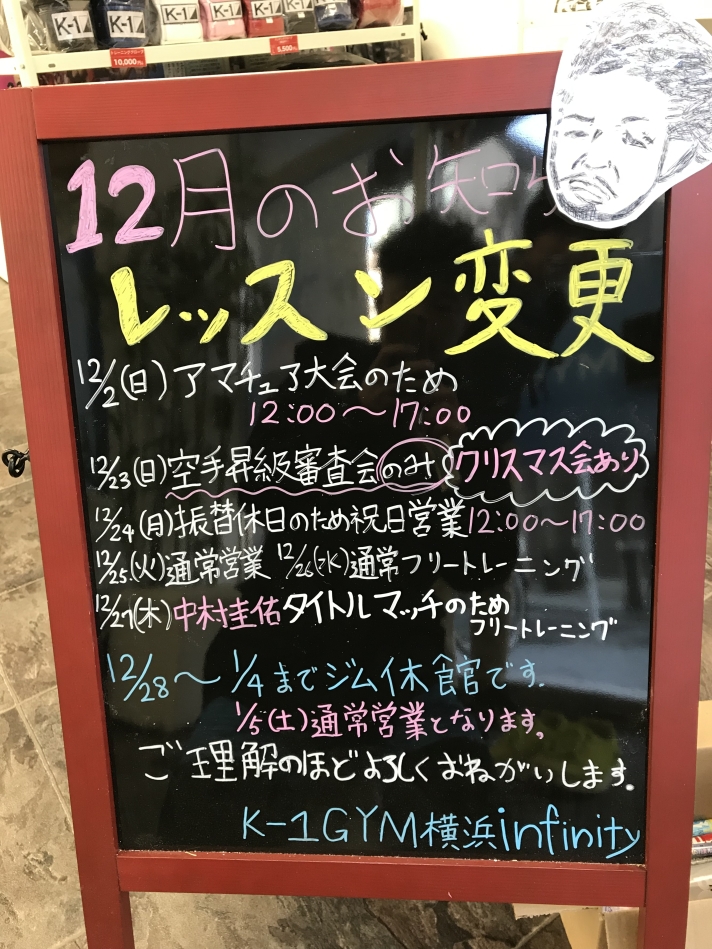 K-1
K-1
K-1
K-1
K-1
10,000
5,500
12月のお知ら
レッスン変更
12/2(日)アマチュア大会のため
12:00〜17:00
12/23(日)空手昇級審査会のみ クリスマス会あり
12/24(月)振替休日のため祝日営業12:00〜17:00
12/25(火)通常営業 12/26(水)通常フリートレーニング
12/27(木)中村圭佑タイトルマッチのため
フリートレーニング
12/28〜1/4までジム休館です.
1/5(土)通常営業となります。
ご理解のほどよろしくおねがいします.
K-1GYM横浜infinity